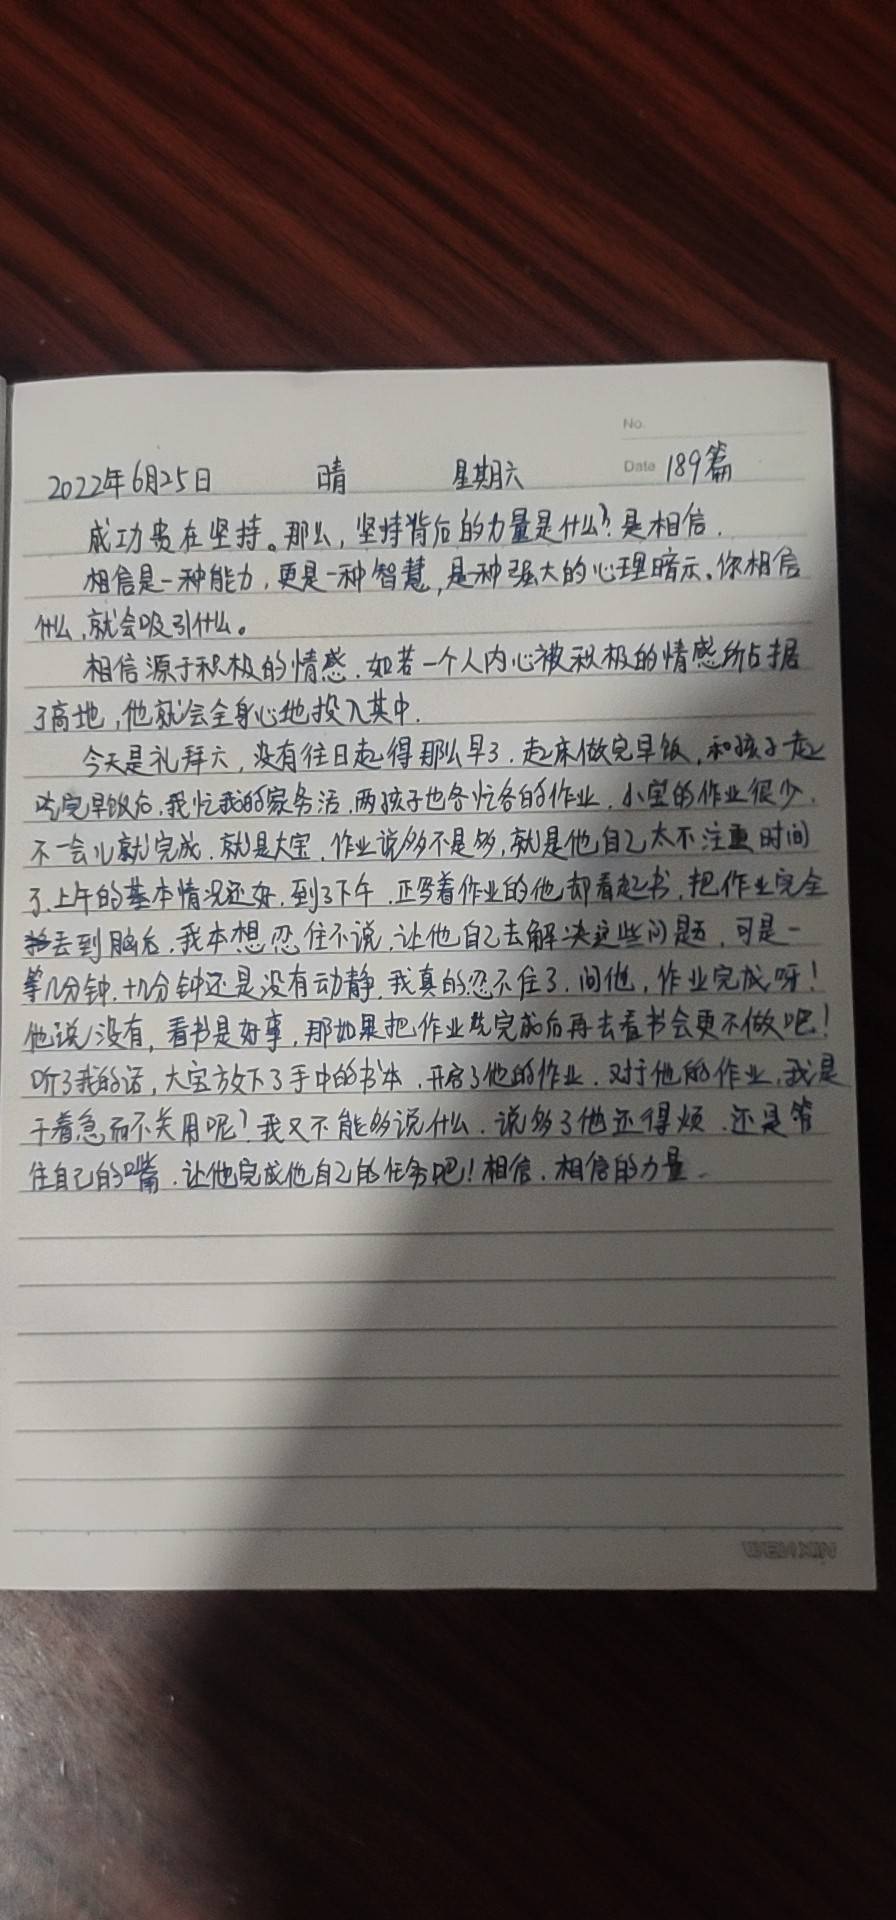 No.
2022年6月25日 晴 星期六 Date 189篇
成功贵在坚持。那么,坚持背后的力量是什么?是相信.
相信是一种能力,更是一种智慧,是种强大的心理暗示。你相信
什么,就会吸引什么。
相信源于积极的情感.如若一个人内心被积极的情感所占据
了高地,他就会全身心地投入其中.
今天是礼拜六,没有往日起得那么早了.起床做完早饭,和孩子一起
吃完早饭后,我忙我的家务活,两孩子也各忙各的作业.小宝的作业很少,
不一会儿就完成.就是大宝,作业说多不是多,就是他自己太不注重时间
了.上午的基本情况还好,到了下午,正写着作业的他却看起书,把作业完全
丢到脑后,我本想忍住不说,让他自己去解决这些问题,可是一
等几分钟,十几分钟还是没有动静,我真的忍不住了.问他,作业完成呀!
他说没有,看书是好事,那如果把作业先完成后再去看书会更不做吧!
听了我的话,大宝放下了手中的书本,开启了他的作业.对于他的作业,我是
干着急而不关用呢?我又不能多说什么.说多了他还得烦.还是管
住自己的嘴.让他完成他自己的任务吧!相信.相信的力量.